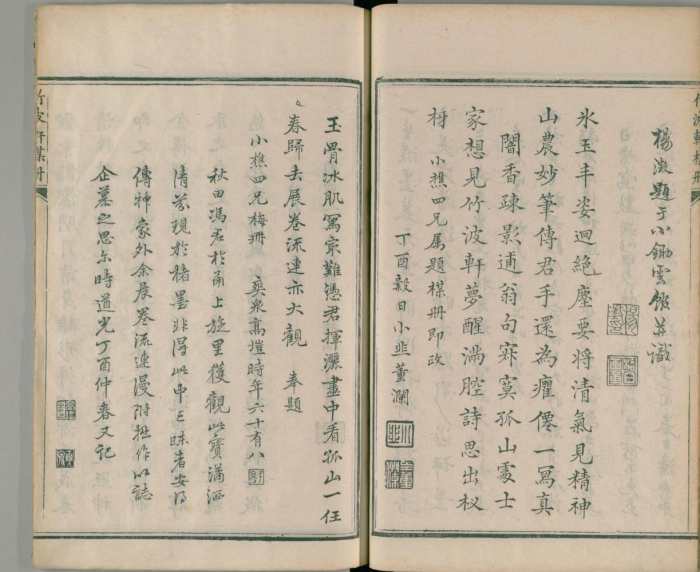 楊澂題于小鋤雲館并識
氷玉丰姿迥絶塵要將清氣見精神
山農妙筆傳君手還為癯僊一寫真
闇香疎影逋翁句寂寞孤山處士
家想見竹波軒夢醒滿腔詩思出杈
枒
小樵四兄属題楳冊即政
丁酉穀日小韭董瀾
玉骨冰肌寫最難憑君揮灑畫中看孤山一任
春歸去展卷流連亦大觀
奉題
小樵四兄梅冊
奕泉高愷時年六十有八
秋田馮君於甬上旋里獲觀此寶滿涵
清芬現於楮墨非得此中三昧者安得
傳神家外余展卷流連漫附拙作以誌
企慕之思尓時道光丁酉仲春又記
竹波軒楳冊